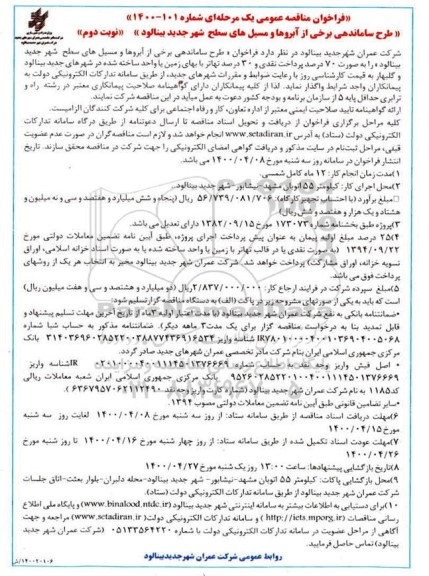 «فراخوان مناقصه عمومی یک مرحله‌ای شماره ۱۰۱-۱۴۰۰»
« طرح ساماندهی برخی از آبروها و مسیل های سطح شهر جدید بینالود » «نوبت دوم»
شرکت عمران شهرجدید بینالود در نظر دارد فراخوان « طرح ساماندهی برخی از آبروها و مسیل های سطح شهر جدید
بینالود » را به صورت ۷۰ درصد پرداخت نقدی و ۳۰ درصد تهاتر با بهای زمین یا واحد ساخته شده در شهرهای جدید بینالود
و گلبهار به قیمت کارشناسی روز با رعایت ضوابط و مقررات شهرهای جدید، از طریق سامانه تدارکات الکترونیکی دولت به
پیمانکاران واجد شرایط واگذار نماید. لذا از کلیه پیمانکاران دارای گواهینامه صلاحیت پیمانکاری معتبر در رشته راه و
ترابری حداقل پایه ۵ از سازمان برنامه و بودجه کشور دعوت به عمل میآید در این مناقصه شرکت نمایند.
ارائه گواهینامه تایید صلاحیت ایمنی معتبر از اداره تعاون، کار و رفاه اجتماعی برای کلیه شرکت کنندگان الزامیست.
کلیه مراحل برگزاری فراخوان از دریافت و تحویل اسناد مناقصه تا ارسال دعوتنامه از طریق درگاه سامانه تدارکات
الکترونیکی دولت (ستاد) به آدرس www.setadiran.ir انجام خواهد شد و لازم است مناقصه گران در صورت عدم عضویت
قبلی، مراحل ثبت‌نام در سایت مذکور و دریافت گواهی امضای الکترونیکی را جهت شرکت در مناقصه محقق سازند. تاریخ
انتشار فراخوان در سامانه روز سه شنبه مورخ ۱۴۰۰/۰۴/۰۸ می باشد.
۱)مدت زمان انجام کار: ۱۲ ماه کامل شمسی.
۲)محل اجرای کار: کیلومتر ۵۵ اتوبان مشهد-نیشابور- شهر جدید بینالود.
مبلغ برآورد (با احتساب تجهیز کارگاه): ۵۶/۷۳۹/۰۸۱/۷۰۶ ریال (پنجاه و شش میلیارد و هفتصد و سی و نه میلیون و
هشتاد و یک هزار و هفتصد و شش ریال)
۳)پروژه طبق بخشنامه شماره ۱۷۳۰۷۳ مورخ ۱۳۸۲/۰۹/۱۵ دارای تعدیل می باشد.
۴)۲۵ درصد مبلغ اولیه پیمان به عنوان پیش پرداخت اجرای پروژه، طبق آیین نامه تضمین معاملات دولتی مورخ
۱۳۹۴/۰۹/۲۲ (به صورت نقدی یا در قالب تهاتر با زمین یا واحد ساخته شده یا به صورت اسناد خزانه اسلامی، اوراق
تسویه خزانه، اوراق مشارکت) پرداخت خواهد شد. شرکت عمران شهر جدید بینالود مخیر به انتخاب هر یک از روشهای
پرداخت فوق می باشد.
۵)مبلغ سپرده شرکت در فرایند ارجاع کار: ۲/۸۳۷/۰۰۰/۰۰۰ریال (دو میلیارد و هشتصد و سی و هفت میلیون ریال)
است که باید به یکی از صورتهای مشروحه زیر در پاکت (الف) به دستگاه مناقصه گزار تسلیم شود:
-ضمانتنامه بانکی به نفع شرکت عمران شهر جدید بینالود (با مدت اعتبار اولیه ۳ماه از تاریخ آخرین مهلت تسلیم پیشنهاد و
قابل تمدید بنا به درخواست مناقصه گزار برای یک مدت۳ ماهه دیگر). ضمانتنامه مذکور به حساب شبا شماره
مرکزی جمهوری اسلامی ایران بنام شرکت مادر تخصصی عمران شهرهای جدید صادر گردد.
- سایر تضامین قانونی طبق آیین نامه تضمین معاملات دولتی مصوب ۱۳۹۴.
۶)مهلت دریافت اسناد مناقصه از طریق سامانه ستاد: از روز سه شنبه مورخ ۱۴۰۰/۰۴/۰۸ لغایت روز سه شنبه
مورخ ۱۴۰۰/۰۴/۱۵
۷)مهلت عودت اسناد تکمیل شده از طریق سامانه ستاد: از روز چهار شنبه مورخ ۱۴۰۰/۰۴/۱۶ تا روز شنبه مورخ
۱۴۰۰/۰۴/۲۶
۸)تاریخ بازگشایی پیشنهادها: ساعت ۱۳:۰۰ روز یک شنبه مورخ ۱۴۰۰/۰۴/۲۷
۹)محل بازگشایی پاکات: کیلومتر ۵۵ اتوبان مشهد-نیشابور- شهر جدید بینالود-محله دلبران-بلوار بعثت-اتاق جلسات
شرکت عمران شهر جدید بینالود از طریق سامانه تدارکات الکترونیکی دولت (ستاد).
۱۰)برای دستیابی به اطلاعات بیشتر به سامانه اینترنتی شهر جدید بینالود (www.binalood.ntdc.ir) و پایگاه ملی اطلاع
رسانی مناقصات (http://iets.mporg.ir) و سامانه تدارکات الکترونیکی دولت(www.setadiran.ir) مراجعه و جهت
آگاهی از مراحل عضویت در سامانه تدارکات الکترونیکی دولت با شماره ۰۵۱۳۳۵۶۴۲۲۰ (شرکت عمران شهر جدید
بینالود) تماس حاصل فرمایید.
روابط عمومی شرکت عمران شهرجدیدبینالود